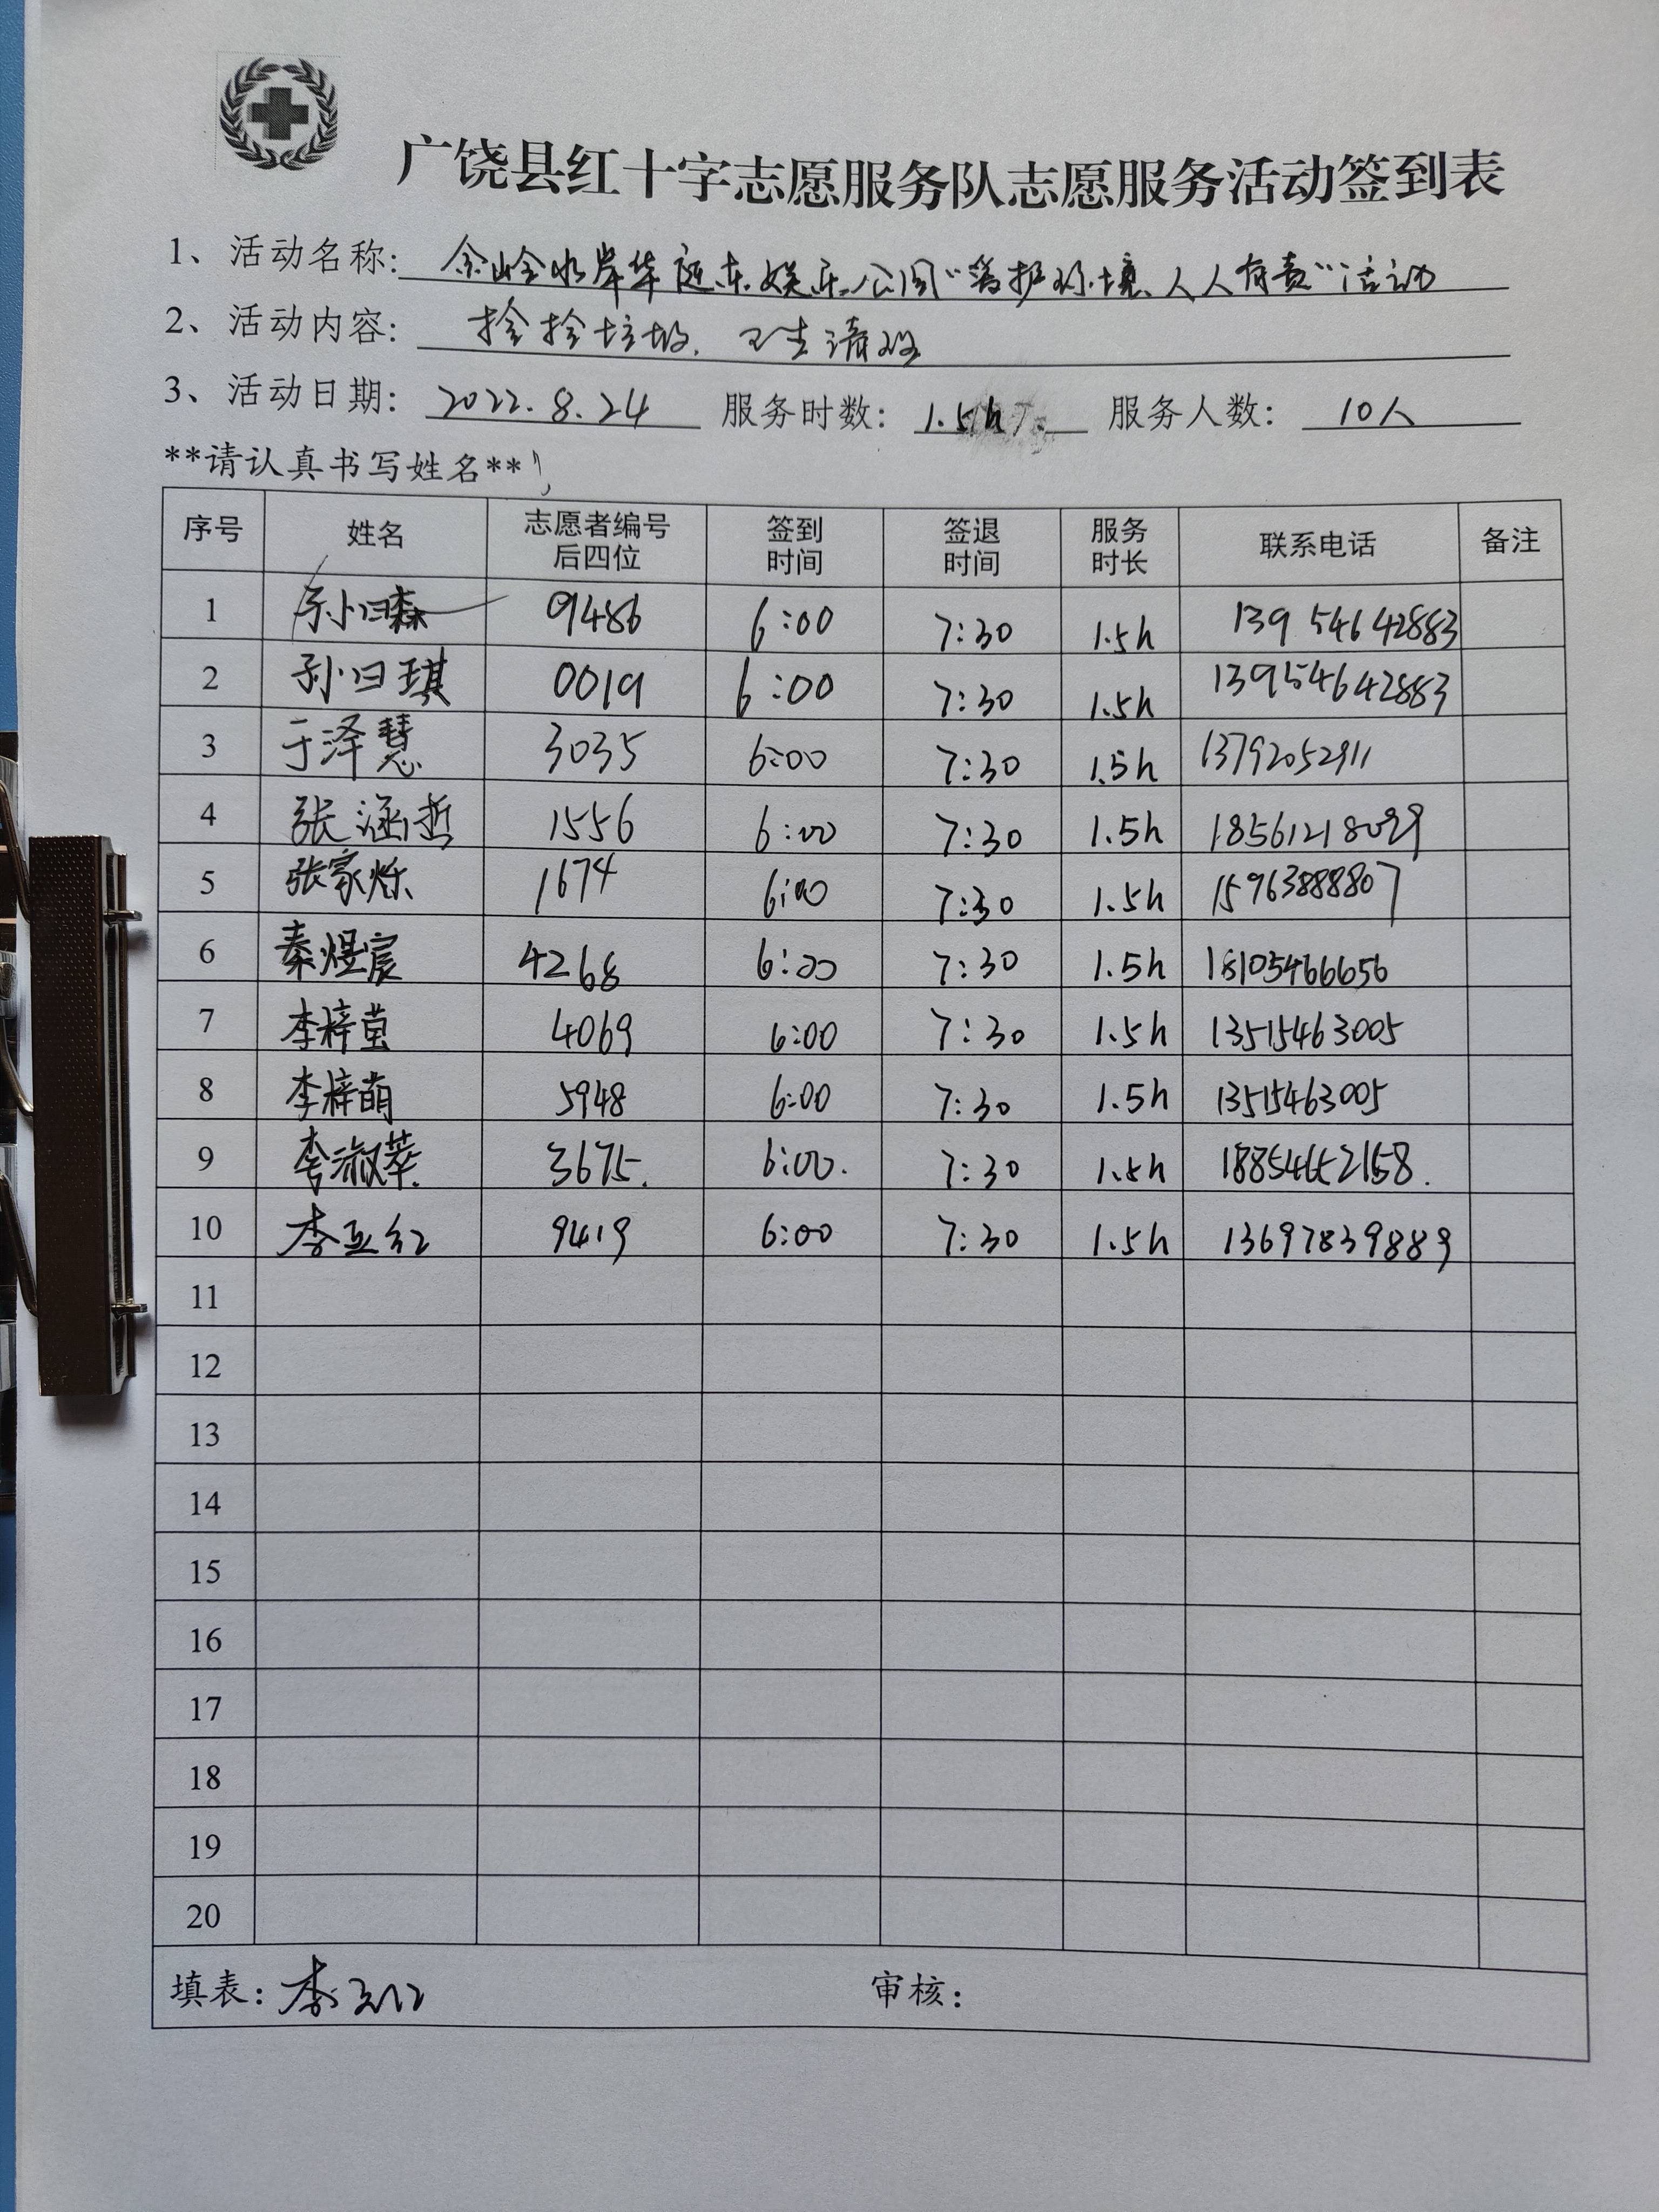 广饶县红十字志愿服务队志愿服务活动签到表
1、活动名称: 水岸华庭东娱乐公园“爱护环境、人人有责”活动
2、活动内容: 捡拾垃圾, 卫生清理
3、活动日期: 2022.8.24 服务时数: 1.5h 服务人数: 10人
**请认真书写姓名**
序号 姓名 志愿者编号后四位 签到时间 签退时间 服务时长 联系电话 备注
1 孙曰森 9486 6:00 7:30 1.5h 139 54642883
2 孙曰琪 0019 6:00 7:30 1.5h 13954642883
3 于泽慧 3035 6:00 7:30 1.5h 13792052911
4 张涵哲 1556 6:00 7:30 1.5h 18561218099
5 张家烁 1674 6:00 7:30 1.5h 15963888807
6 秦煜宸 4268 6:00 7:30 1.5h 18105466656
7 李梓萤 4069 6:00 7:30 1.5h 13515463005
8 李梓萌 5948 6:00 7:30 1.5h 13515463005
9 李淑萃 3675. 6:00. 7:30 1.5h
10 李亚红 9419 6:00 7:30 1.5h 13697839889
11
12
13
14
15
16
17
18
19
20
填表: 李亚红 审核: